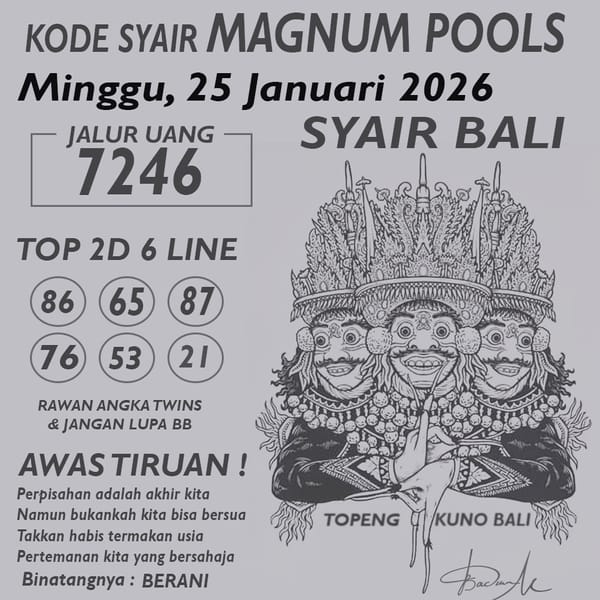 KODE SYAIR MAGNUM POOLS
Minggu, 25 Januari 2026
JALUR UANG
7246
SYAIR BALI
TOP 2D 6 LINE
86 65 87
76 53 21
RAWAN ANGKA TWINS
& JANGAN LUPA BB
AWAS TIRUAN !
Perpisahan adalah akhir kita
Namun bukankah kita bisa bersua
Takkan habis termakan usia
Pertemanan kita yang bersahaja
Binatangnya : BERANI
TOPENG KUNO BALI